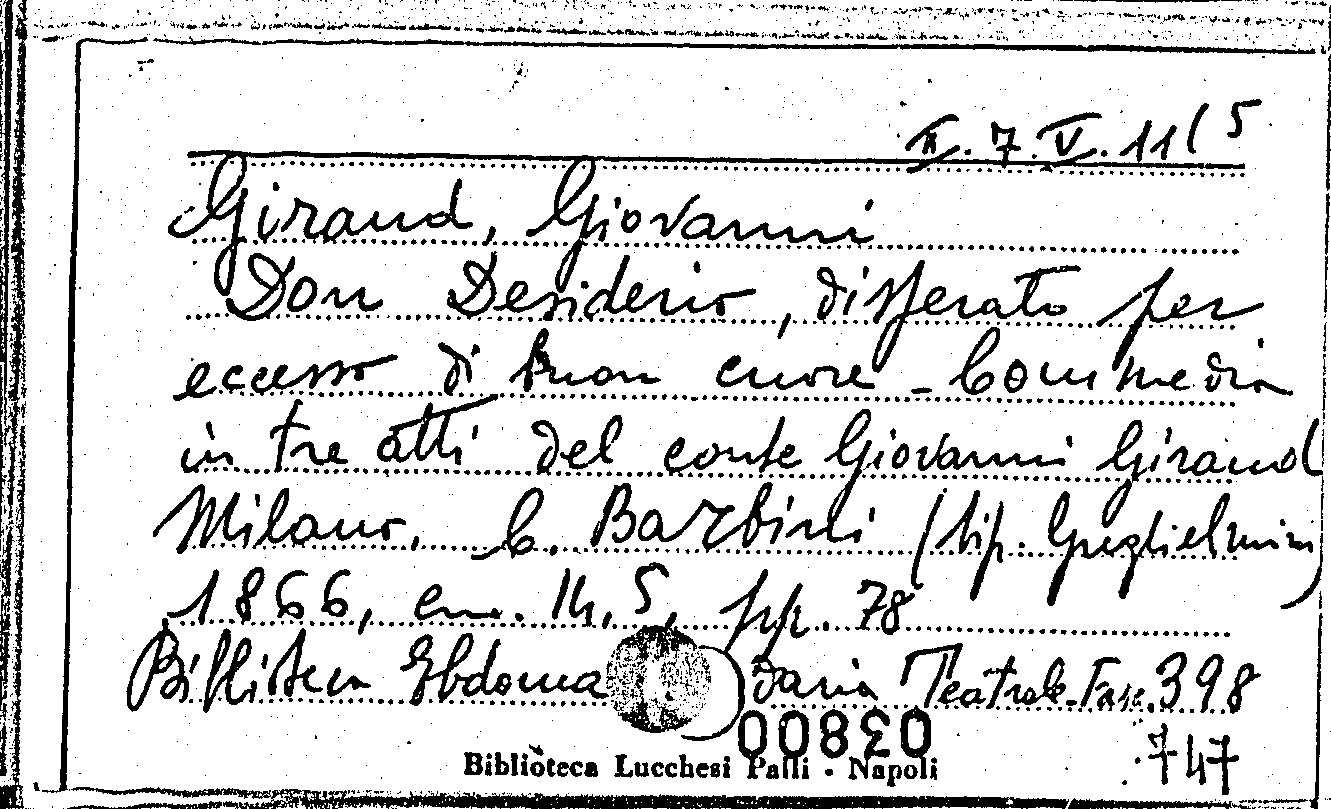 II. 7. V. 11(5
Giraud, Giovanni
Don Desiderio, disperato per
eccesso di buon cuore - Commedia
in tre atti del conte Giovanni Giraud
Milano, C. Barbini (tip. Guglielmini)
1866, cm. 14,5, pp. 78
Biblioteca Ebdomadaria Teatrale - Fasc. 398
00830
747
Biblioteca Lucchesi Palli - Napoli